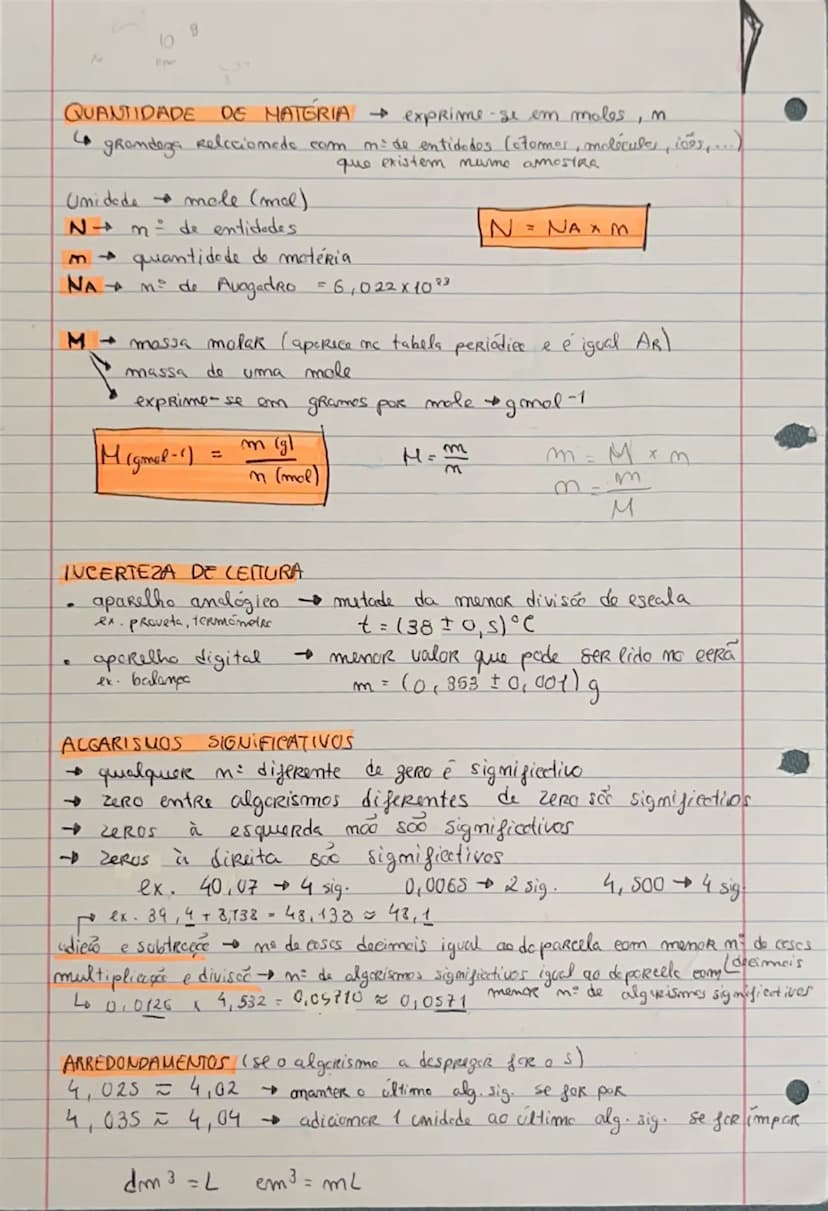 10 g
QUANTIDADE DE MATÉRIA → exprime-se em moles, n
↳ grandeza relacionada com nº de entidades (átomos, moléculas, iões, ...)
que existem numa amostra
Unidade → mole (mol)
N → nº de entidades
N = NA x n
n → quantidade de matéria
NA → nº de Avogadro = 6,022x10²³
M → massa molar (aparece na tabela periódica e é igual AR)
massa de uma mole
exprime-se em gramas por mole → gmol-1
M(gmol-1) = m (g) / n (mol)
M = m/n
m = M x n
n = m/M
INCERTEZA DE LEITURA
• aparelho analógico → metade da menor divisão de escala
ex. proveta, termómetro
t = (38 ± 0,5)°C
• aparelho digital → menor valor que pode ser lido no ecrã
ex. balança
m = (0,353 ± 0,001) g
ALGARISMOS SIGNIFICATIVOS
→ qualquer nº diferente de zero é significativo
→ zero entre algarismos diferentes de zero são significativos
→ zeros à esquerda não são significativos
→ zeros à direita são significativos
ex. 40,07 → 4 sig. 0,0065 → 2 sig. 4,500 → 4 sig
ex. 39,4 + 8,738 = 48,138 ≈ 48,1
adição e subtração → nº de casas decimais igual ao da parcela com menor nº de casas decimais
multiplicação e divisão → nº de algarismos significativos igual ao da parcela com
menor nº de algarismos significativos
↳ 0,0126 x 4,532 = 0,05710 ≈ 0,0571
ARREDONDAMENTOS (se o algarismo a desprezar for o 5)
4,025 ≈ 4,02 → manter o último alg. sig. se for par
4,035 ≈ 4,04 → adicionar 1 unidade ao último alg. sig. se for ímpar
dm³ = L cm³ = mL